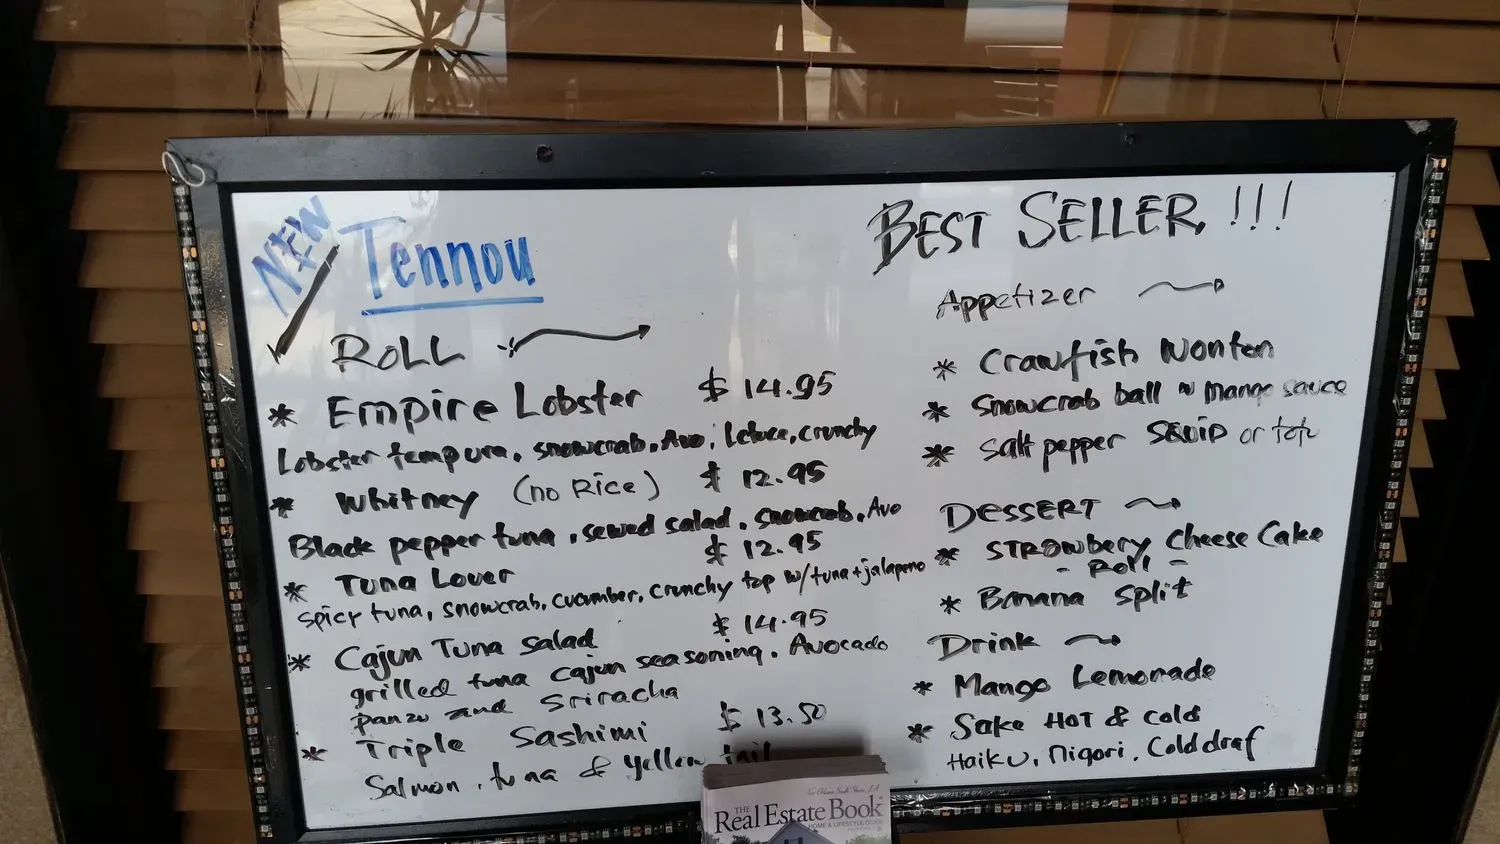 NEW Tennou
ROLL
* Empire Lobster $ 14.95
Lobster tempura, snowcrab, Avo, letuce, crunchy
* Whitney (no Rice) $ 12.95
Black pepper tuna, sewed salad, snowcrab, Avo
* Tuna Lover $ 12.95
spicy tuna, snowcrab, cucumber, crunchy top w/tuna+jalapeno
* Cajun Tuna Salad $ 14.95
grilled tuna cajun seasoning, Avocado
panzu and Sriracha
* Triple Sashimi $ 13.50
Salmon, tuna & yellow tail
BEST SELLER !!!
Appetizer
* Crawfish Wonton
* Snowcrab ball ~ mango sauce
* Salt pepper SQUID or tofu
DESSERT
* STROWbery Cheese Cake
- Roll -
* Banana Split
Drink
* Mango Lemonade
* Sake HOT & Cold
Haiku, Nigori, Cold draf
THE
Real Estate Book
HOME & LIFESTYLE GUIDE